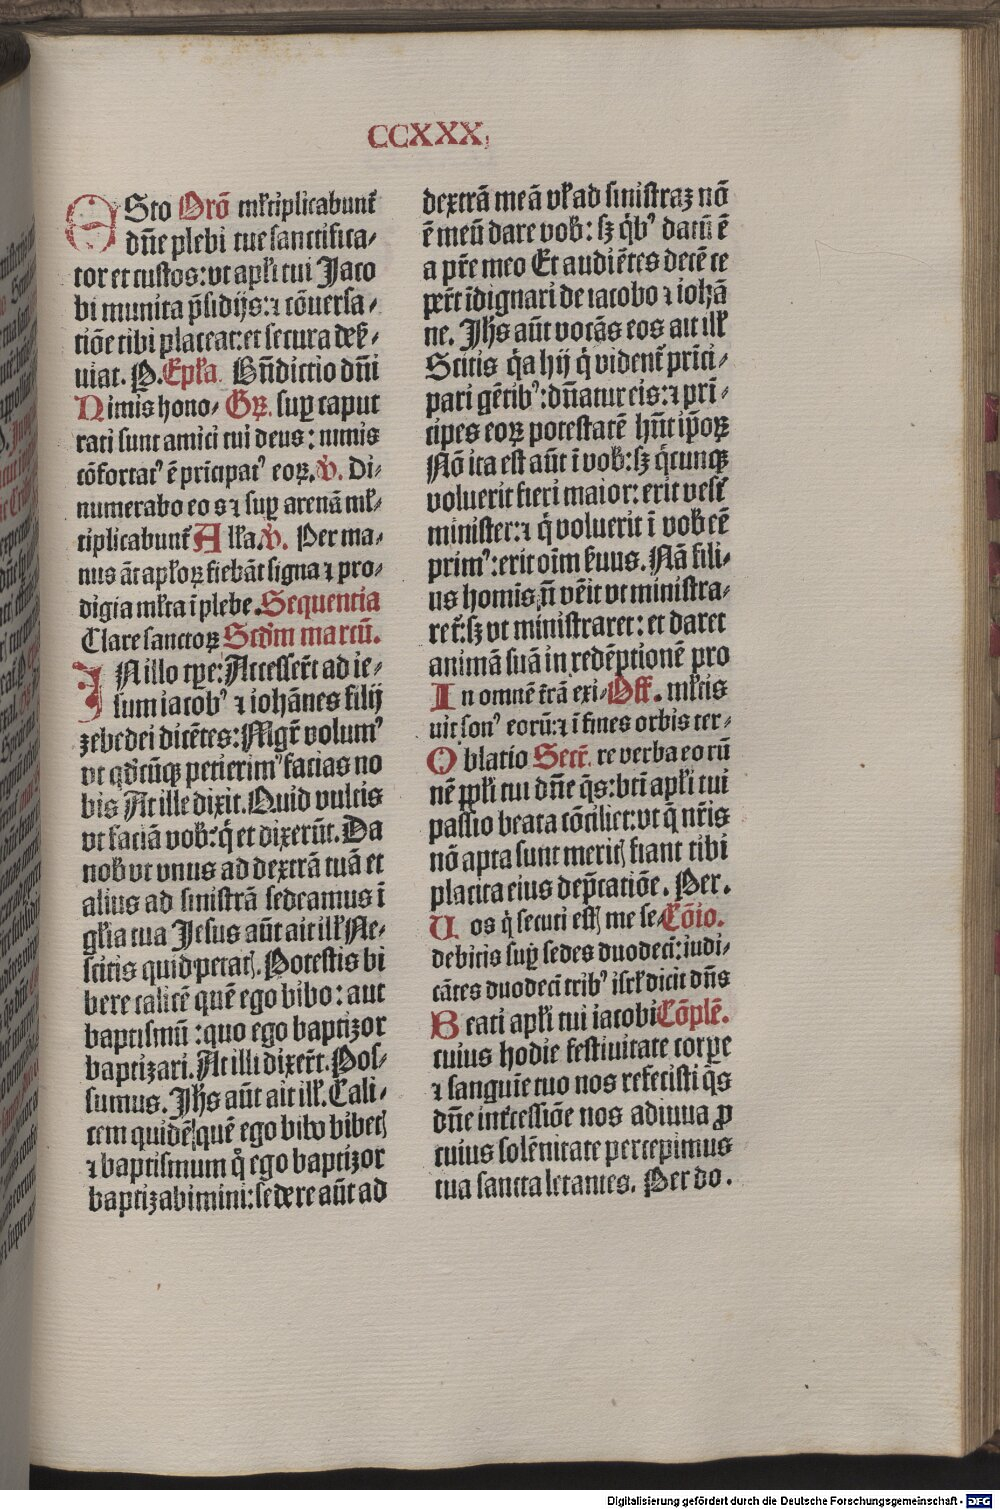 CCXXX.
ESto Orõ mĺtiplicabunť
dñe plebi tue sanctifica-
tor et custos: vt apľi tui Jaco
bi munita p̃sidijs: ⁊ cõuersa-
tiõe tibi placeat: et secura deß-
uiat. P. Epľa. Bñdictio dñi
Nimis hono- Gꝝ. suꝑ caput
rati sunt amici tui deus: nimis
cõfortatꝰ ẽ prĩcipatꝰ eoꝝ. V. Di-
numerabo eos ⁊ suꝑ arenã mľ-
tiplicabunť Alľa. V. Per ma-
nus ãt apľoꝝ fiebãt signa ⁊ pro-
digia mľta ĩ plebe. Sequentia
Clare sanctoꝝ Scďm marcũ.
IN illo tꝑe: Accesserť ad ie-
sum iacobꝰ ⁊ iohãnes filij
zebedei dicẽtes: Mgr̃ volumꝰ
vt qďcũqꝫ petierimꝰ facias no
bis At ille dixit. Quid vultis
vt faciã vob: q̇ et dixerũt. Da
nob vt vnus ad dextrã tuã et
alius ad sinistrã sedeamus ĩ
gľia tua Jesus aũt ait ilľ Ne-
scitis quid petatꝭ. Potestis bi
bere calicẽ quẽ ego bibo: aut
baptismũ: quo ego baptizor
baptizari. At illi dixerť. Pos-
sumus. Jhs aũt ait ilľ. Cali-
cem quidẽ quẽ ego bibo bibetꝭ
⁊ baptismum q̊ ego baptizor
baptizabimini: sedere aũt ad
dextrã meã vľ ad sinistraꝫ nõ
ẽ meũ dare vob: sꝫ q̇bꝰ datũ ẽ
a pr̃e meo Et audiẽtes decẽ ce
ꝑeŕt ĩdignari de iacobo ⁊ iohã
ne. Jhs aũt vocãs eos ait ilľ
Scitis q̃a hij q̇ videnť prĩci-
pari gẽtibꝰ: dñatur eis: ⁊ prĩ-
cipes eoꝝ potestatẽ hñt ip̃oꝝ
Nõ ita est aũt ĩ vob: sꝫ q̇cunqꝫ
voluerit fieri maior: erit vesť
minister: ⁊ q̇ voluerit ĩ vob eẽ
primꝰ: erit oĩm ẜuus. Nã fili-
us hominis ñ vẽit vt ministra-
reť: sꝫ vt ministraret: et daret
animã suã in redẽptionẽ pro
In omnẽ ťrã exi- Off. mľtis
uit sonꝰ eorũ: ⁊ ĩ fines orbis ter-
Oblatio Secŕ. re verba eorũ
nẽ ꝓpľi tui dñe q̃s: bťi apľi tui
passio beata cõciliet: vt q̃ nr̃is
nõ apta sunt meritꝭ fiant tibi
placita eius dep̃catiõe. Per.
Vos q̇ secuti estꝭ me se- Cõio.
debitis suꝑ sedes duodecĩ: iudi-
cãtes duodecĩ tribꝰ isrľ dicit dñs
Beati apľi tui iacobi Cõplẽ.
cuius hodie festiuitate corꝑe
⁊ sanguĩe tuo nos refecisti q̃s
dñe inťcessiõe nos adiuua ꝓ
cuius solẽnitate percepimus
tua sancta letantes. Per do.
Digitalisierung gefördert durch die Deutsche Forschungsgemeinschaft - DFG